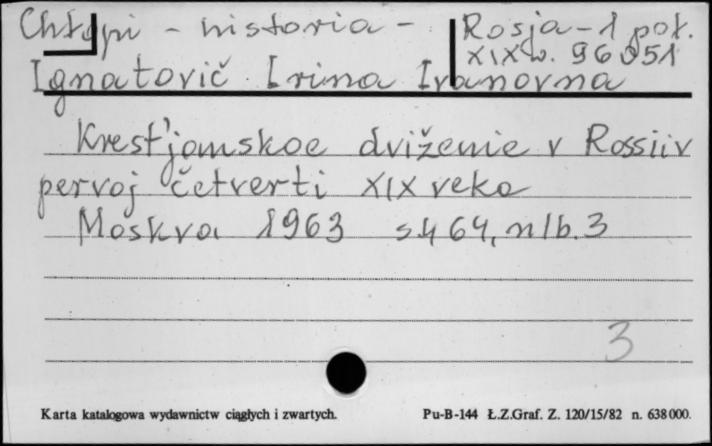 Chłopi - historia - Rosja - 1 poł.
XIX w. 96051
Ignatovič Irina Ivanovna
Krest'janskoe dviženie v Rossii v
pervoj četverti XIX veka
Moskva 1963 s. 464, nlb. 3
3
Karta katalogowa wydawnictw ciągłych i zwartych. Pu-B-144 Ł.Z.Graf. Z. 120/15/82 n. 638000.